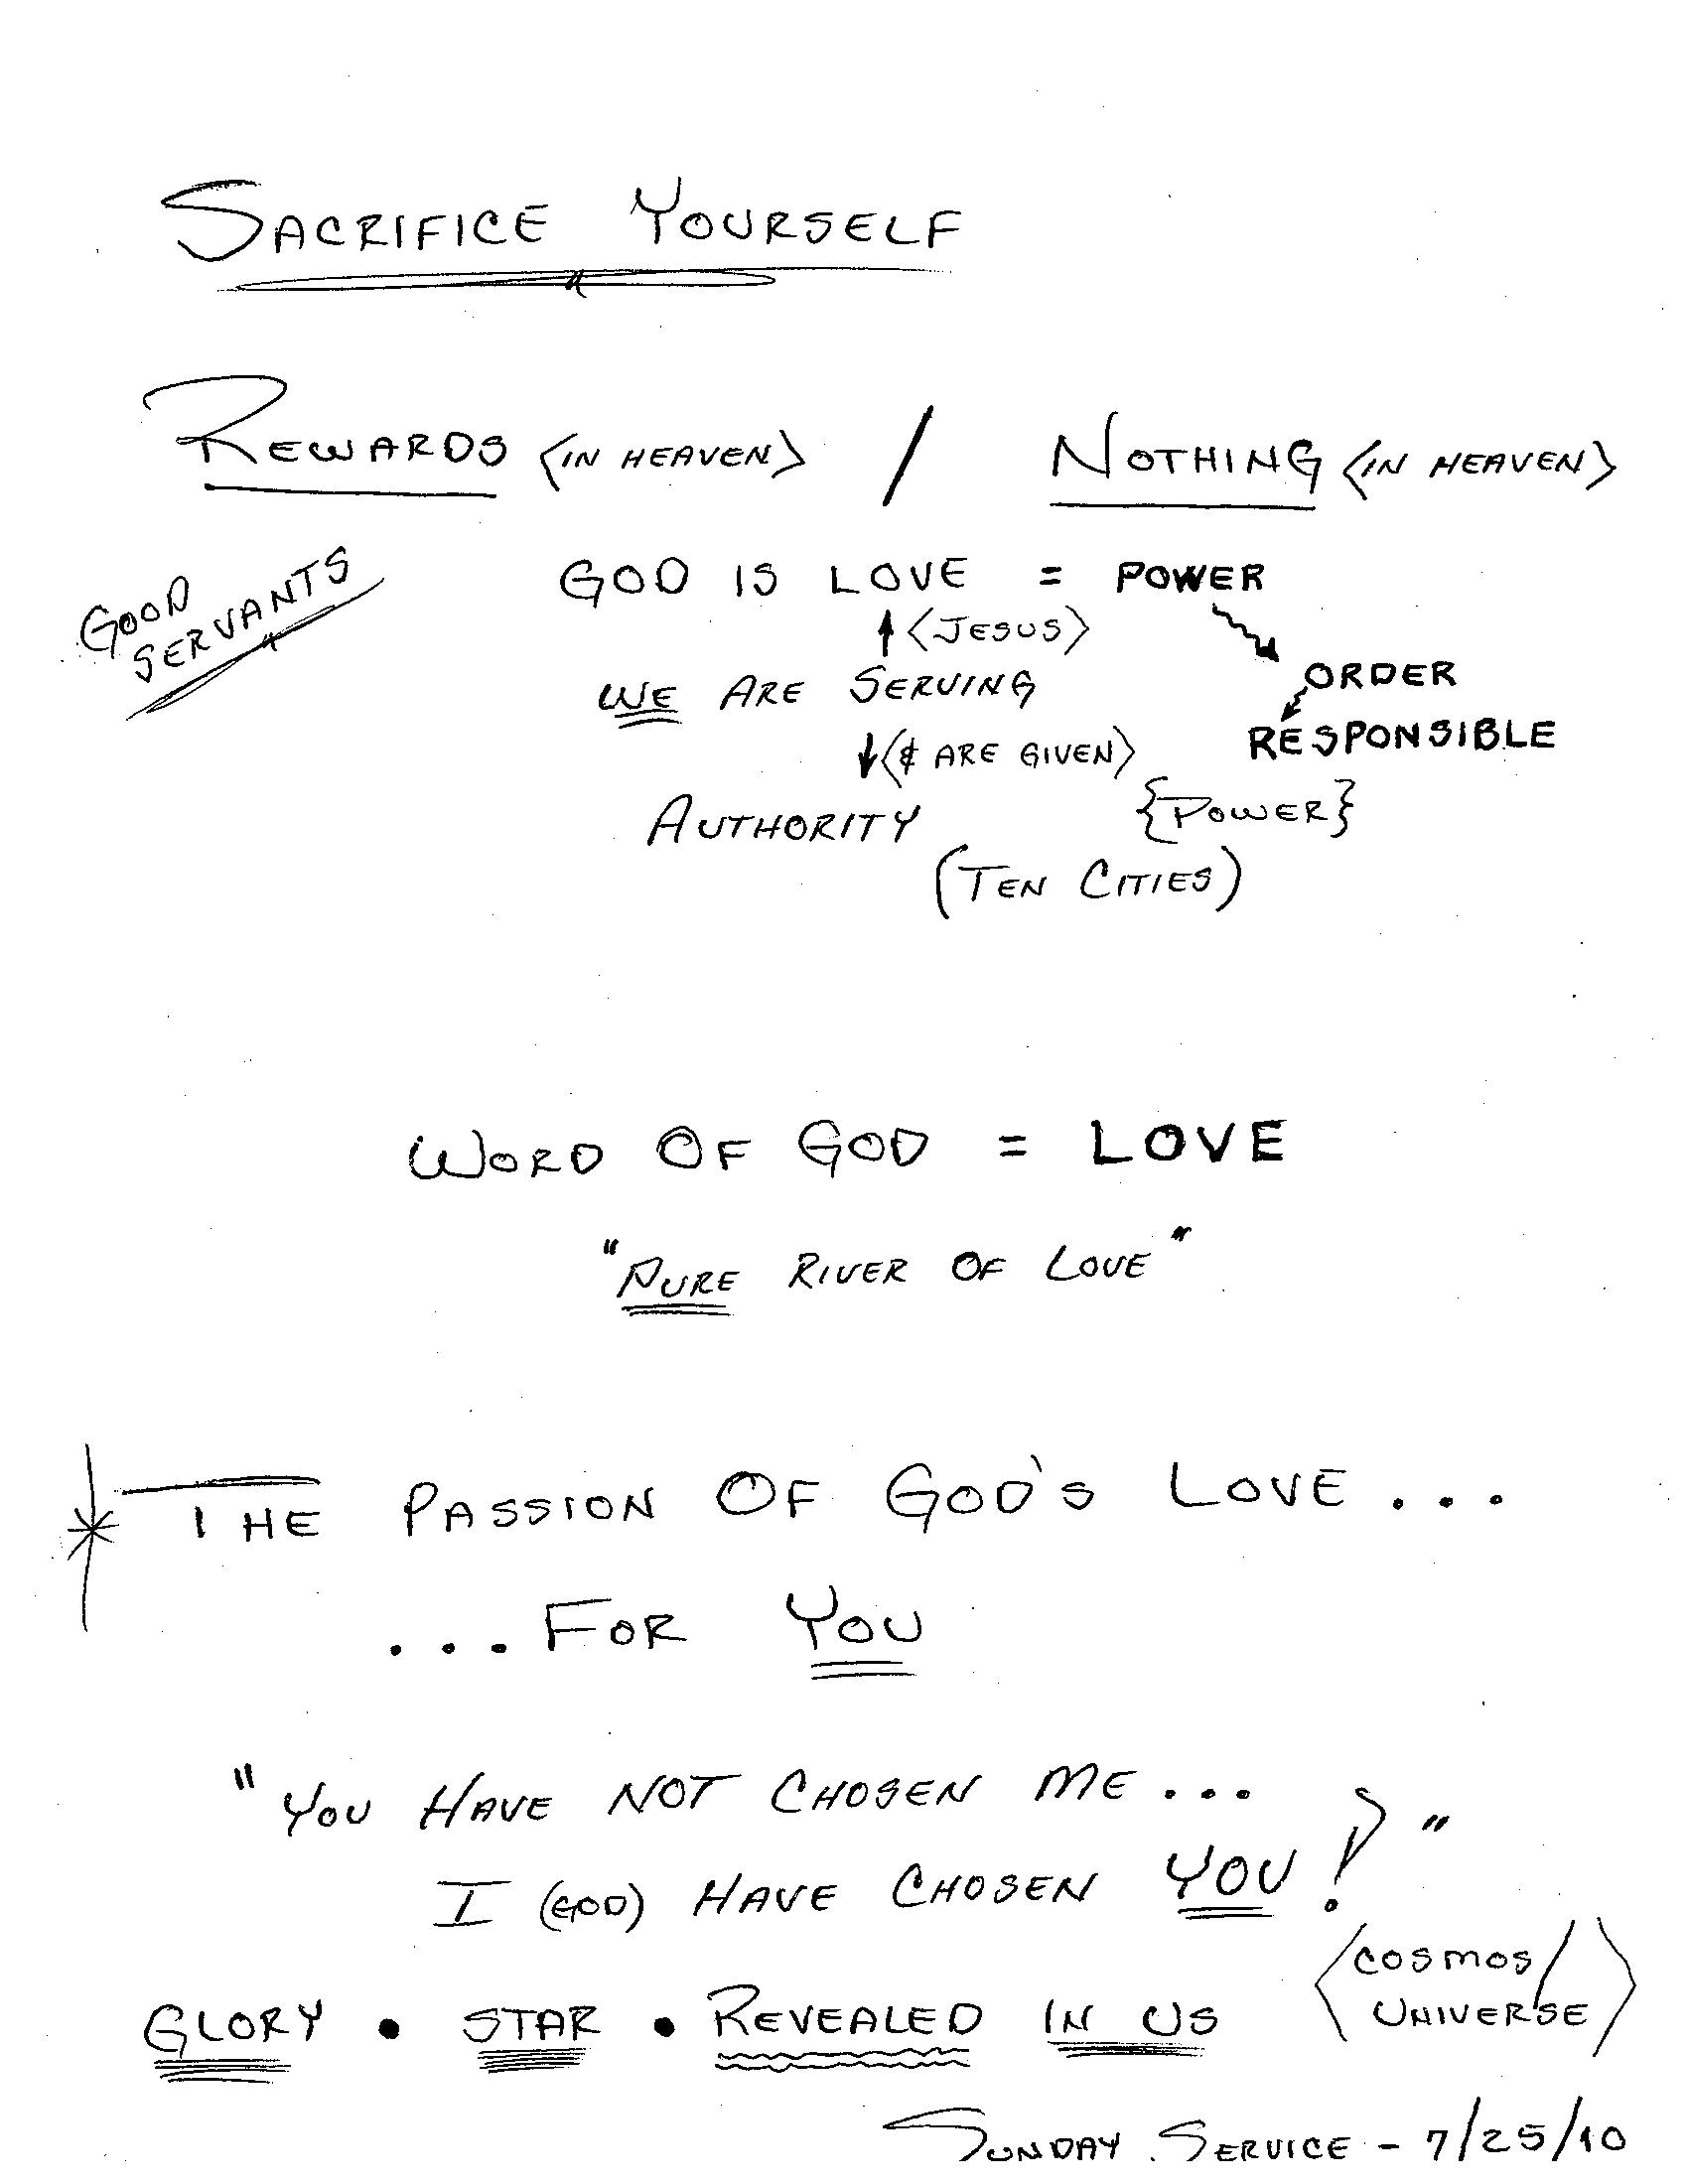 SACRIFICE YOURSELF
REWARDS <IN HEAVEN> / NOTHING <IN HEAVEN>
GOOD
SERVANTS
GOD IS LOVE = POWER
<JESUS>
ORDER
WE ARE SERVING
RESPONSIBLE
<& ARE GIVEN>
AUTHORITY {POWER}
(TEN CITIES)
WORD OF GOD = LOVE
"PURE RIVER OF LOVE"
* THE PASSION OF GOD'S LOVE...
...FOR YOU
"YOU HAVE NOT CHOSEN ME...
I (GOD) HAVE CHOSEN YOU!"
<COSMOS/
UNIVERSE>
GLORY • STAR • REVEALED IN US
SUNDAY SERVICE - 7/25/10